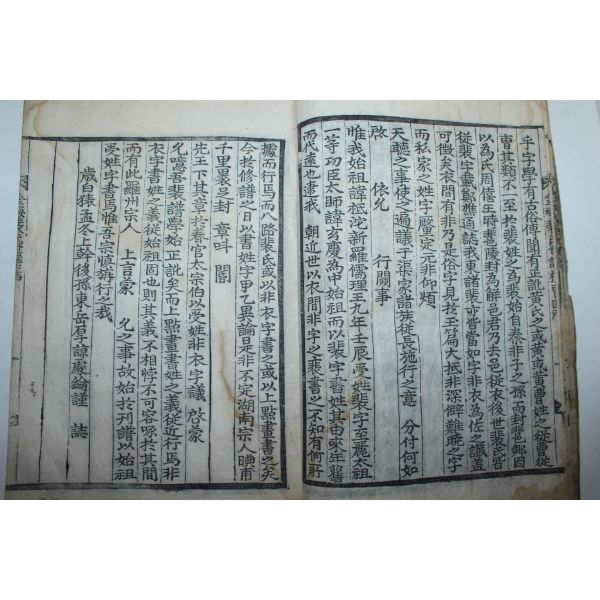 乎字學子有古俗傳聞有正訛黃氏之或黃或黃曹姓之從曹從
曹其類不一至於裴姓之爲裴始自秦非子之孫而封䛀鄕因
以爲氏周僖王時䛀陵封爲解邑君乃去邑從衣後世裴氏皆
從裴字載鄭樵通誌我東諸裴亦皆當如字非衣爲佐之讖盖
可徵矣衣間有非乃是俗字見於玉篇大抵非深僻難曉之字
而私家之姓字釐定元非仰煩
天聽之事使之遍議于渠家諸族從長施行之意 分付何如
啓 依允 行關事
惟我始祖諱祗沱新羅儒理王九年壬辰受姓裴字至麗太祖
一等功臣太師諱玄慶爲中始祖而以裴字書姓其由來年舊
而代遠也逮我 朝近世以衣間非字之裴書之不知有何所
據而行焉而八路裴氏或以非衣字書之或以上點畫書之矣
今於修譜之日以書姓字甲乙異論是非不定湖南宗人
千里裹足封 章叫 閽
先王下其章於春官太宗伯以受姓非衣字議 啓蒙
允噫吾裴譜學始正訛矣而上點畫書姓之義從近行焉非
衣字書姓之義從始祖因也則其義不相悖不可容喙於其間
而有此羅州宗人 上言蒙 允之事故始於刊譜以始祖
受姓字書焉惟吾宗愼旃行之哉
歲白猿孟冬上幹後孫東岳厚諒處綸謹 誌